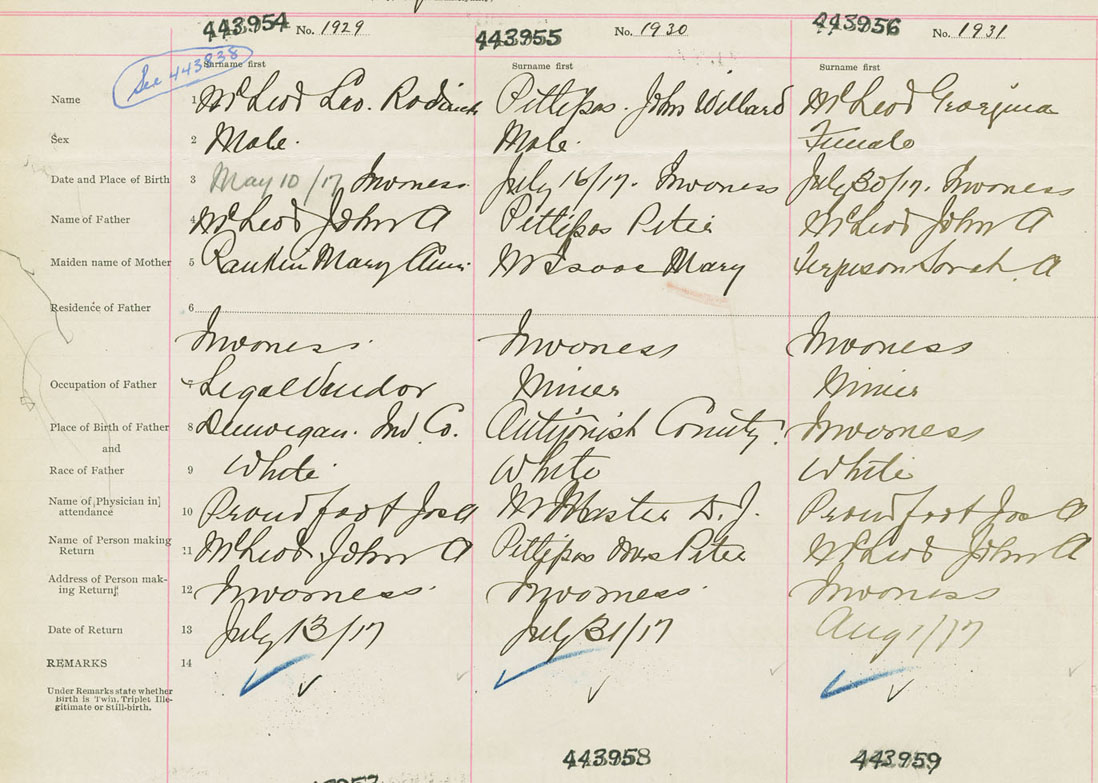 443954 No. 1929 443955 No. 1930 443956 No. 1931
See 443838
Surname first Surname first Surname first
Name 1 McLeod Leo. Pittipas. John Willard McLeod Georgina
Sex 2 Male. Male. Female
Date and Place of Birth 3 May 10/17 Inverness July 16/17. Inverness July 30/17. Inverness
Name of Father 4 McLeod John A Pittipas Peter McLeod John A
Maiden name of Mother 5 Rankin Mary Ann McIsaac Mary Ferguson Sarah A
Residence of Father 6
Inverness Inverness Inverness
Occupation of Father 7 Legal Vendor Miner Miner
Place of Birth of Father 8 Dunvegan. Inv Co. Antigonish County. Inverness
and
Race of Father 9 White White White
Name of Physician in
attendance 10 Proudfoot Jos A McMaster D. J. Proudfoot Jos A
Name of Person making
Return 11 McLeod John A Pittipas Mrs Peter McLeod John A
Address of Person mak-
ing Return 12 Inverness Inverness Inverness
Date of Return 13 July 13/17 July 31/17 Aug 1/17
REMARKS 14
Under Remarks state whether
Birth is Twin, Triplet Ille-
gitimate or Still-birth.
443958 443959